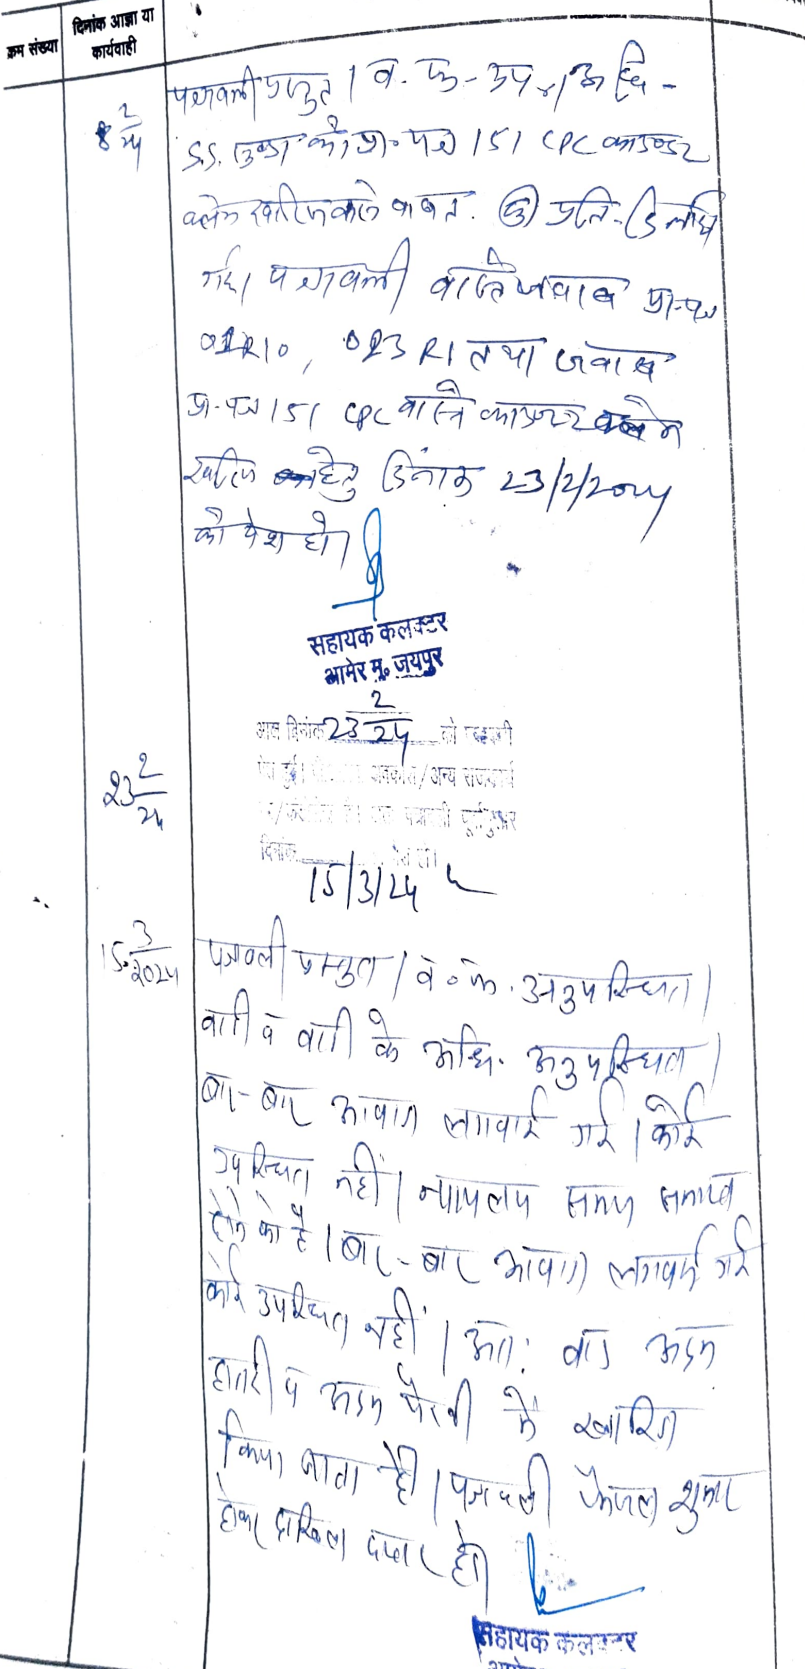 क्रम संख्या
दिनांक आज्ञा या
कार्यवाही
8 2/24
पत्रावली प्रस्तुत। व. फ. - उप. अधि -
S.S. को प्रा. पत्र 151 CPC काउण्टर
क्लेम खारिज करने बाबत. प्रति-
गई। पत्रावली वास्ते जवाब प्रा. पत्र
01R10, 023 R1 तथा जवाब
प्रा. पत्र 151 CPC वास्ते काउण्टर क्लेम
खारिज हेतु दिनांक 23/2/2024
को पेश हो।
सहायक कलक्टर
आमेर मु. जयपुर
23 2/24
आज दिनांक 23 2/24 को पत्रावली
पेश हुई। अवकाश/अन्य राजकार्य
पत्रावली पूर्वानुसार
दिनांक पेश हो।
15/3/24
15. 3/2024
पत्रावली प्रस्तुत। व. फ. अनुपस्थित।
वादी व वादी के अधि. अनुपस्थित।
बार-बार आवाज लगवाई गई। कोई
उपस्थित नहीं। न्यायालय समय समाप्त
होने को है। बार-बार आवाज लगवाई गई
कोई उपस्थित नहीं। अतः वाद अदम
हाजरी व अदम पैरवी में खारिज
किया जाता है। पत्रावली फैसल शुमार
होकर दाखिल दफ्तर हो।
सहायक कलक्टर